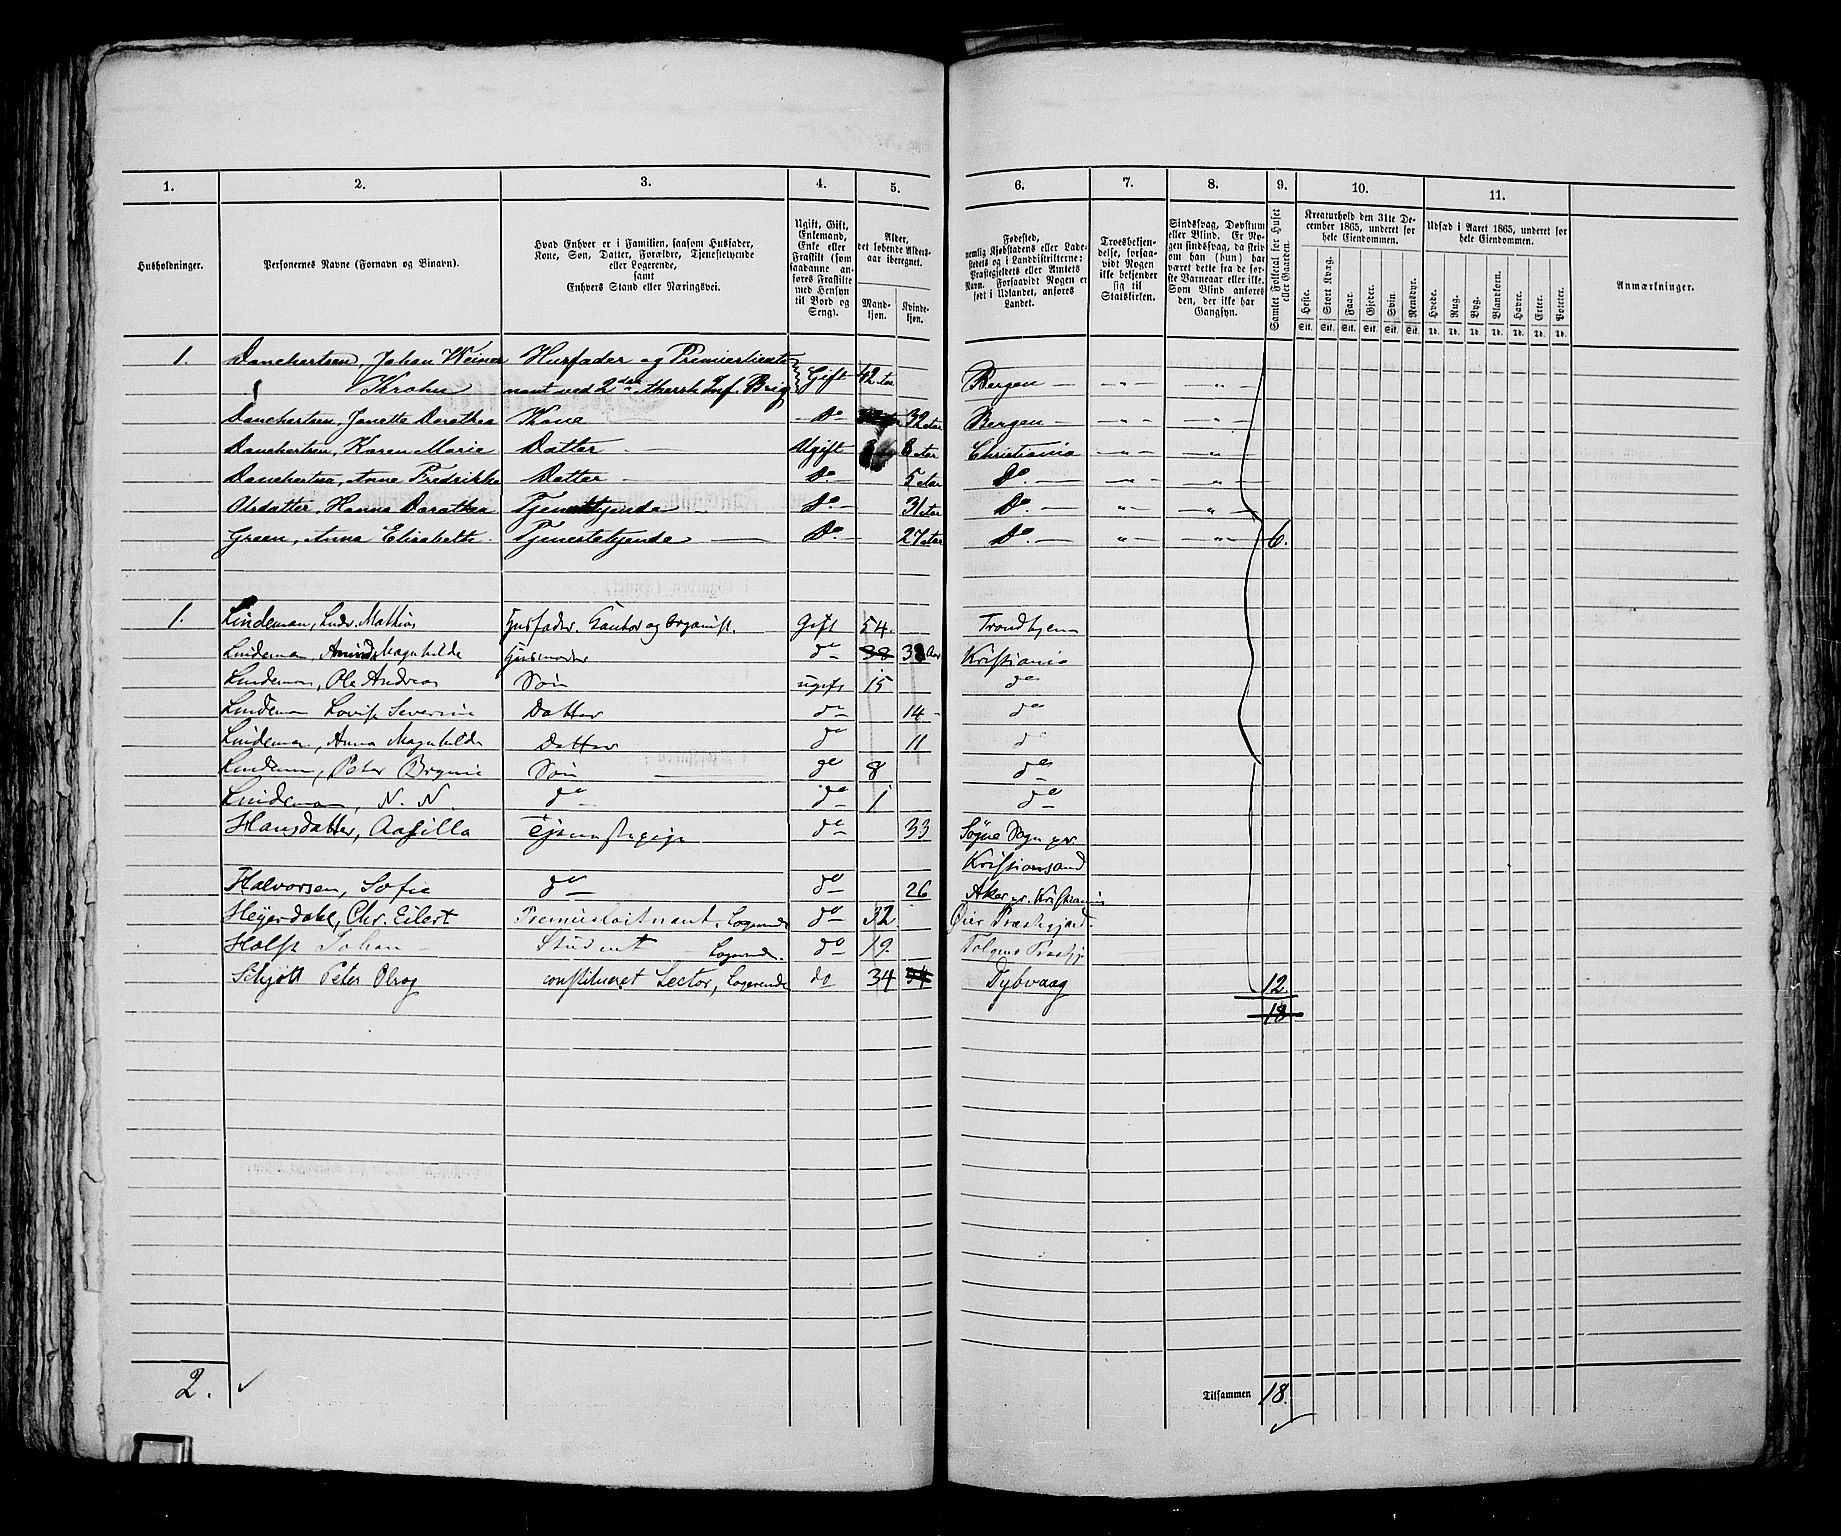 1. 2. 3. 4. 5. 6. 7. 8. 9. 10. 11.
Husholdninger.
Personernes Navne (Fornavn og Binavn).
Hvad Enhver er i Familien, saasom Husfader,
Kone, Søn, Datter, Forældre, Tjenestetyende
eller Logerende,
samt
Enhvers Stand eller Næringsvei.
Ugift, Gift,
Enkemand,
Enke eller
Fraskilt (som
saadanne an-
føres Fraskilte
med Hensyn
til Bord og
Seng).
Alder,
det løbende Alders-
aar iberegnet.
Mand-
kjøn.
Kvinde-
kjøn.
Fødested,
nemlig Kjøbstadens eller Lade-
stedets og i Landdistrikterne:
Præstegjeldets eller Amtets
Navn. Forsaavidt Nogen er
født i Udlandet, anføres
Landet.
Troesbekjen-
delse, forsaa-
vidt Nogen
ikke bekjender
sig til
Statskirken.
Sindssvag, Døvstum
eller Blind. Er No-
gen sindssvag, da skriv
om han (hun) har
været dette fra de før-
ste Barneaar eller ikke.
Som Blind anføres
den, der ikke har
Gangsyn.
Samlet Folketal for Huset
eller Gaarden.
Kreaturhold den 31te De-
cember 1865, underet for
hele Eiendommen.
Heste. Stort Kvæg. Faar. Gjeder. Svin Rensdyr.
Stk. Stk. Stk. Stk. Stk. Stk.
Udsæd i Aaret 1865, underet for
hele Eiendommen.
Hvede. Rug. Byg. Blandkorn. Havre. Erter. Poteter.
Td. Td. Td. Td. Td. Td. Td.
Anmærkninger.
1. Danchertsen, Johan Weiner Husfader og Premierlieute-
Krohn nant ved 2den Akersh. Inf. Brig. Gift 42 Aar Bergen — „ — „
Danchertsen, Janette Dorothea Kone — Do — 32 Aar Bergen — „ — „
Danchertsen, Karen Marie Datter — Ugift 8 Aar Christiania — „ — „
Danchertsen, Anna Fredrikke Datter — Do — 5 Aar Do — „ — „
Olsdatter, Hanna Dorothea Tjenestetyende Do — 31 Aar Do — „ — „
Green, Anna Elisabeth. Tjenestetyende — Do — 27 Aar Do — „ — „ 6.
1. Lindeman, Ludv. Mathias Husfader. Cantor og Organist. Gift 54. Trondhjem
Lindeman, Aminda Magnhilde Husmoder do 38 38 Aar Kristiania
Lindeman, Ole Andreas Søn ugift 15 do
Lindeman Lovise Severine Datter do 14 - do
Lindeman, Anna Magnhilda Datter do 11 do
Lindeman, Peter Brynie Søn — do 8 do
Lindeman, N. N. do do 1 do
Hansdatter, Aasilla Tjenestepige do 33 Søgne Sogn pr.
Kristiansand
Halvorsen, Sofie do do 26 Aker pr. Kristiania
Heyerdahl, Chr. Eilert Premierløitnant, Logerende do 32 Øier Præstegjæld.
Holst Johan — Student Logerende. do 19. Tolgens Præstgj
Schjøtt Peter Olrog constitueret Lector, Logerende do 34 34 Dybvaag 12.
18
2.
Tilsammen 18.